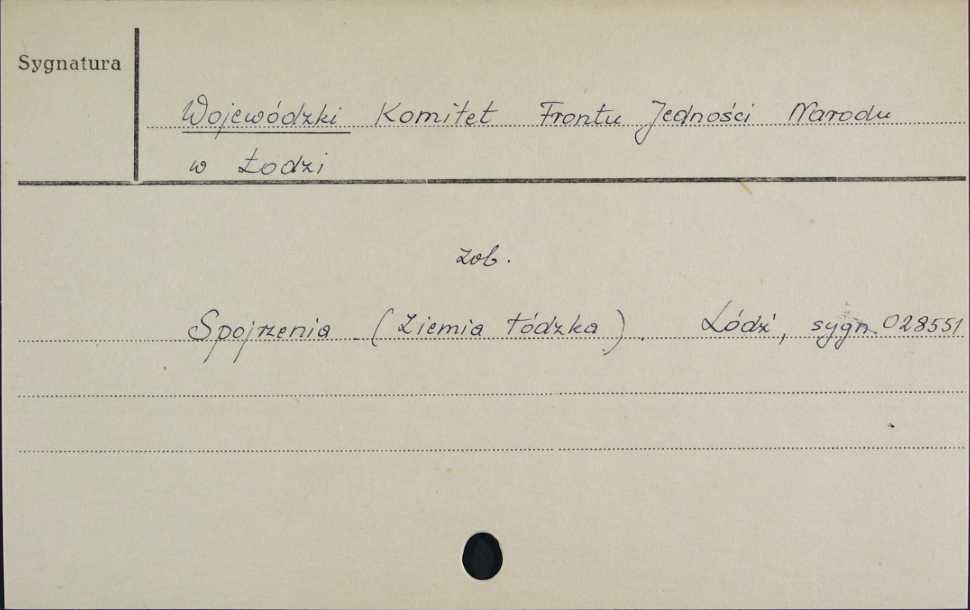 Sygnatura
Wojewódzki Komitet Frontu Jedności Narodu
w Łodzi
zob.
Spojrzenia (Ziemia Łódzka). Łódź, sygn. 028551